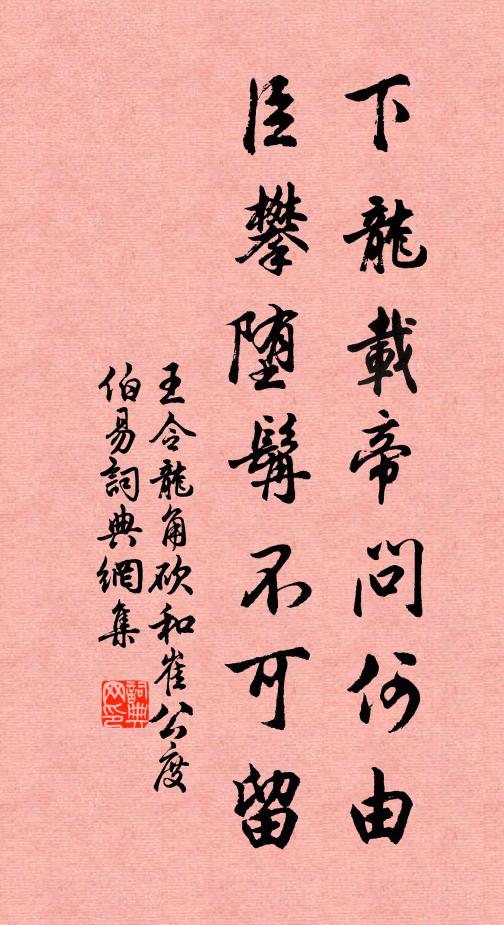 下龍載帝問何由
臣攀堕髯不可留
王令龍角砍和崔公度
伯易詞典網集
詞典
网印